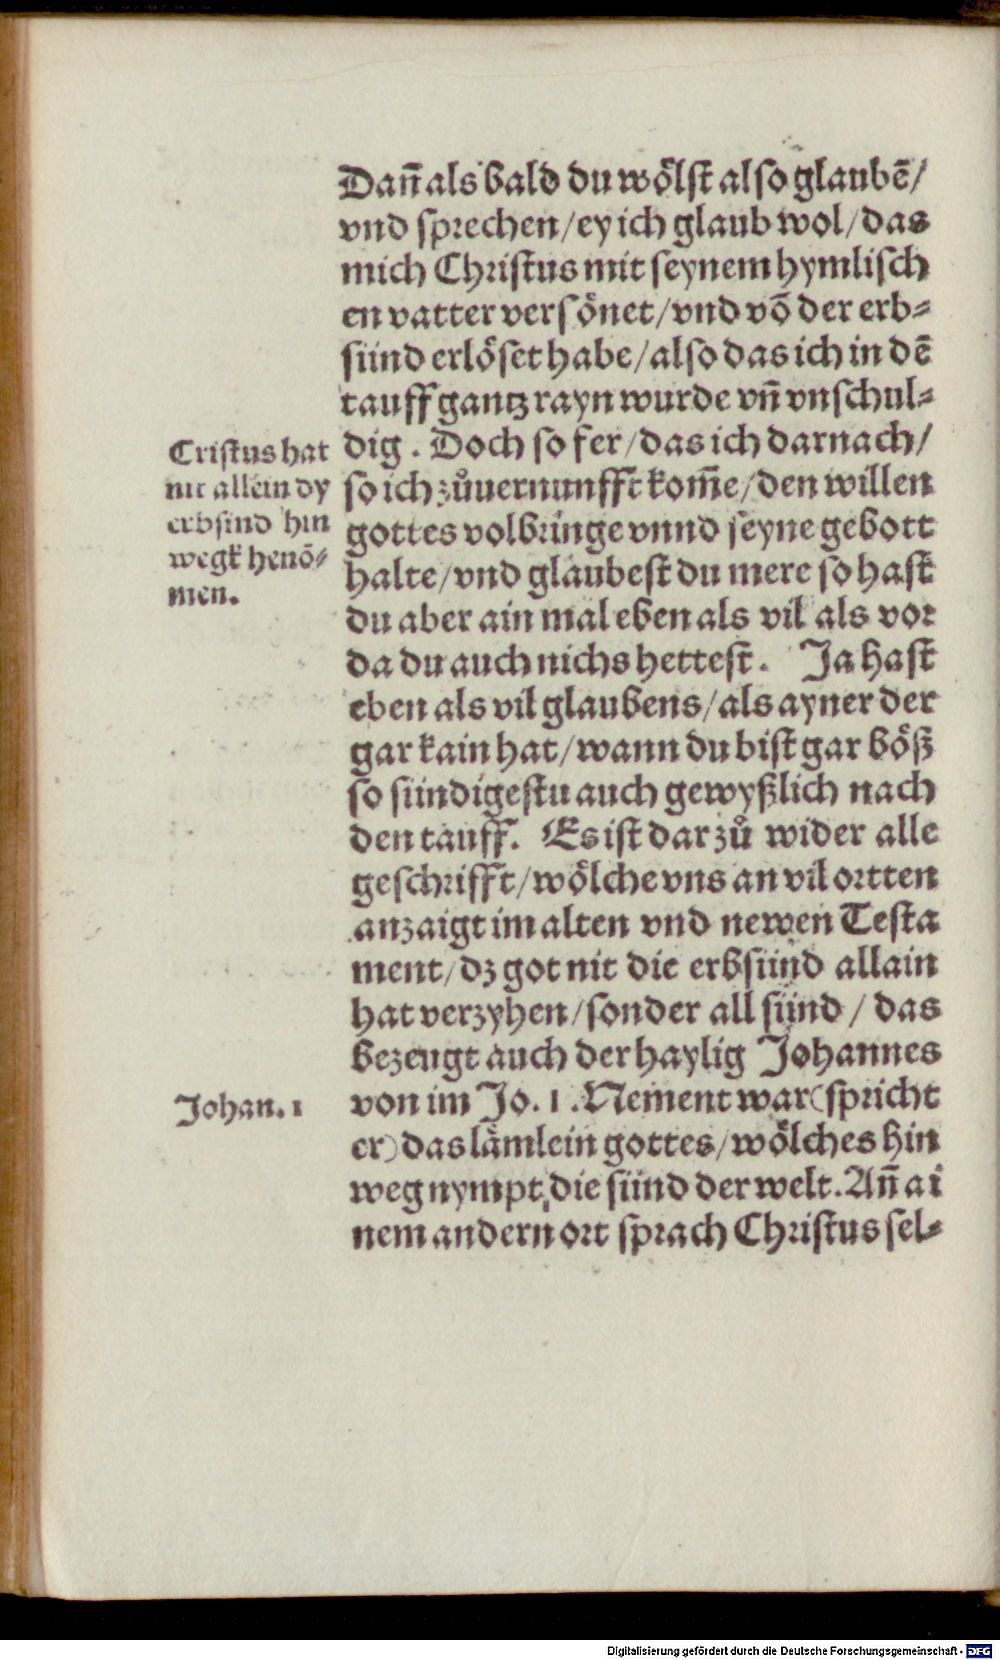 Dañ als bald du wölst also glaubẽ/
vnd sprechen/ey ich glaub wol/das
mich Christus mit seynem hymlisch
en vatter versönet/vnd võ der erb-
sünd erlöset habe/also das ich in dẽ
tauff gantz rayn wurde vñ vnschul-
dig. Doch so fer/das ich darnach/
so ich zůuernunfft kom̃e/den willen
gottes volbringe vnnd seyne gebott
halte/vnd glaubest du mere so hast
du aber ain mal eben als vil als vor
da du auch nichs hettest. Ja hast
eben als vil glaubens/als ayner der
gar kain hat/wann du bist gar böß
so sündigestu auch gewyßlich nach
den tauff. Es ist dar zů wider alle
geschrifft/wölche vns an vil ortten
anzaigt im alten vnd newen Testa
ment/dz got nit die erbsünd allain
hat verzyhen/sonder all sünd/das
bezeugt auch der haylig Johannes
von im Jo. 1. Nement war(spricht
er)das lämlein gottes/wölches hin
weg nympt die sünd der welt. Añ ai
nem andern ort sprach Christus sel-
Cristus hat
nit allein dy
erbsind hin
wegk henõ-
men.
Johan. 1
Digitalisierung gefördert durch die Deutsche Forschungsgemeinschaft - DFG